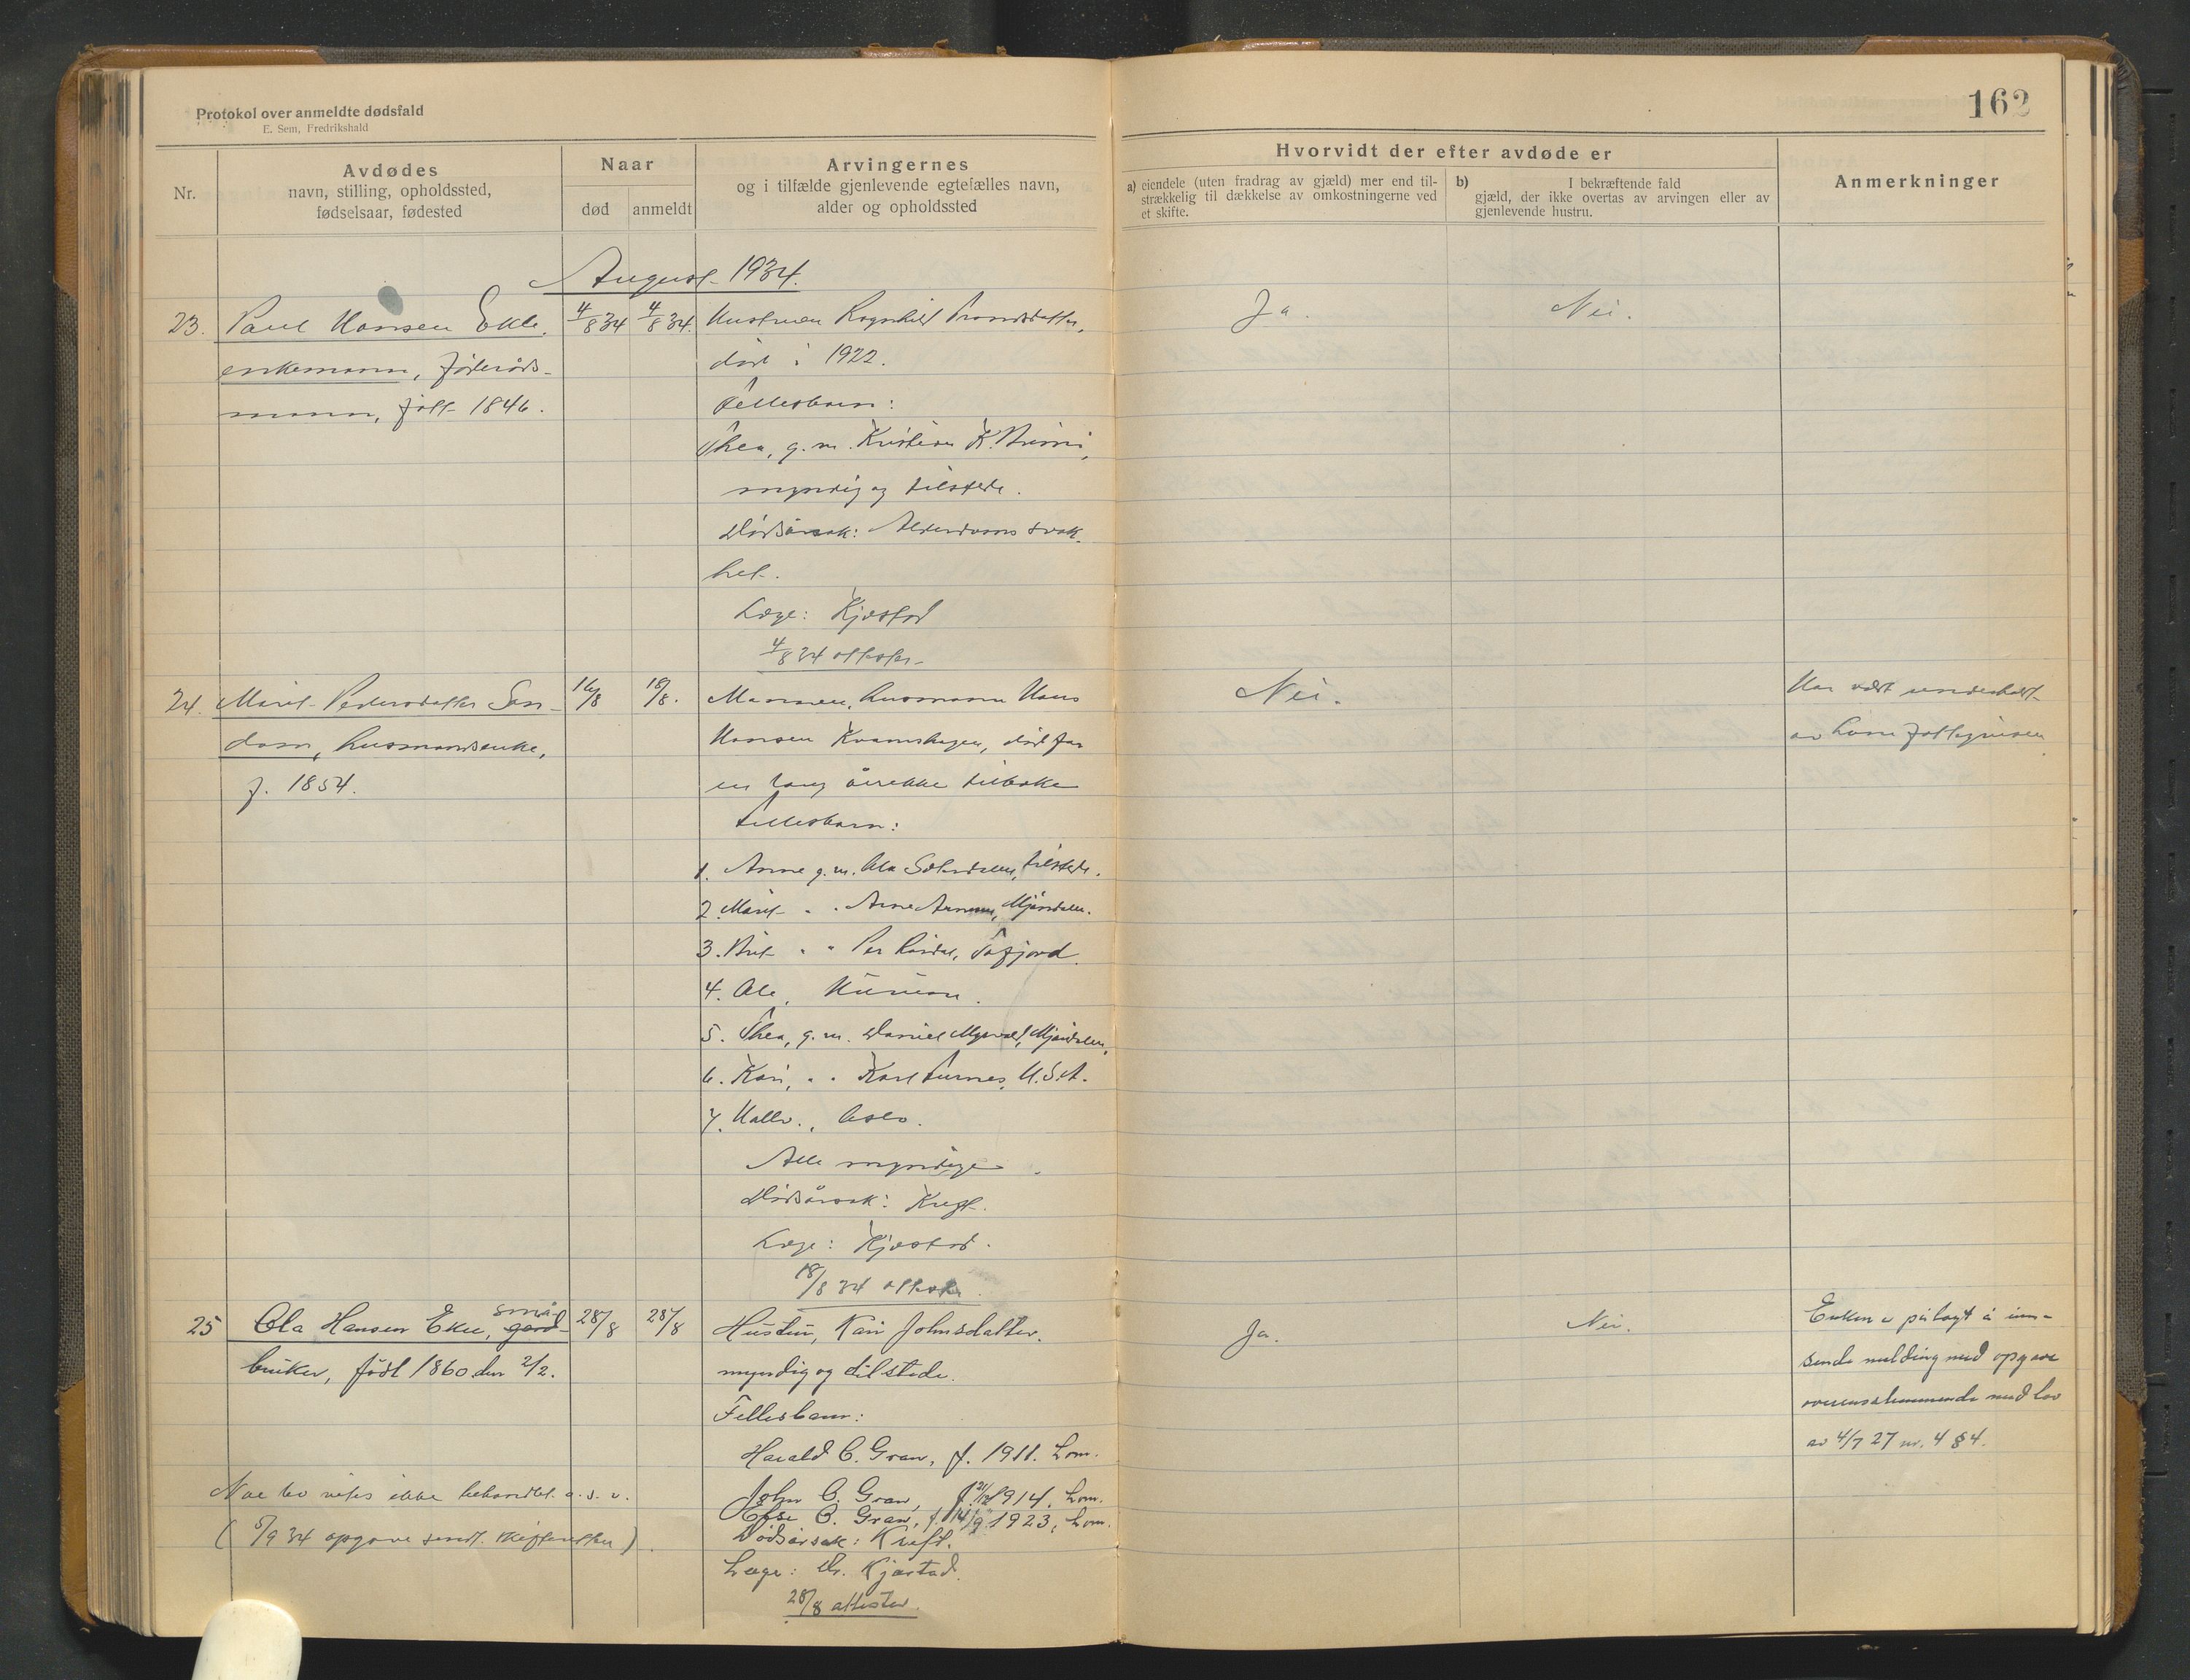 Protokol over anmeldte dødsfald
E. Sem, Fredrikshald
162
Nr.
Avdødes
navn, stilling, opholdssted,
fødselsaar, fødested
Naar
død
anmeldt
Arvingernes
og i tilfælde gjenlevende egtefælles navn,
alder og opholdssted
Hvorvidt der efter avdøde er
a) eiendele (uten fradrag av gjæld) mer end til-
strækkelig til dækkelse av omkostningerne ved
et skifte.
b) I bekræftende fald
gjæld, der ikke overtas av arvingen eller av
gjenlevende hustru.
Anmerkninger
August 1934.
23. Paul Hansen Ekle,
enkemann, föderåds-
mann, født 1846.
4/8 34
4/8 34.
Hustruen Ragnhild
død i 1922.
Fellesbarn:
Thea, g.m. Kristian K.
myndig og tilstede.
Dödsårsak: Alderdomssvak-
het.
Læge: Kjæstad
4/8 34 attester
Ja.
Nei.
24. Marit Pedersdatter San-
dom, husmandsenke,
f. 1854.
16/8
18/8.
Mannen, husmann Hans
Hansen Kvamshagen, död for
en lang årrekke tilbake
Fellesbarn:
1. Anne g.m. Ola tilstede.
2. Marit " " Arne Mjöndalen.
3. Brit " " Per Tafjord.
4. Ole,
5. Thea, g.m. Daniel Mjöndalen,
6. Kari, " " Karl Furnes, U.S.A.
7. Hallv., Oslo.
Alle myndige.
Dödsårsak: Kreft.
Læge: Kjæstad.
18/8 34 attester.
Nei.
Har vært underholdt
av Lom
25 Ola Hansen Ekle, gard-
små
bruker, født 1860 den 2/2.
28/8
28/8
Hustru, Kari Johnsdatter.
myndig og tilstede.
Fellesbarn:
Harald O. Gran, f. 1911. Lom.
John O. Gran, 1914, Lom.
O. Gran, 1923, Lom.
Dødsårsak: Kreft.
Læge: Dr. Kjæstad.
28/8 attester.
Ja.
Nei.
Enken er pålagt å inn-
sende melding med opgave
overensstemmende med lov
av 4/7 27 nr. 4 § 4.
ikke behandlet
( 5/9 34 opgave sendt skifteretten ).